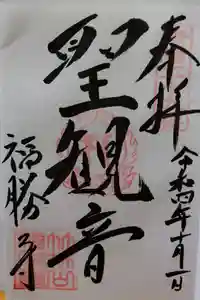 奉拝
令和四年十一月一日
聖観音
福勝寺